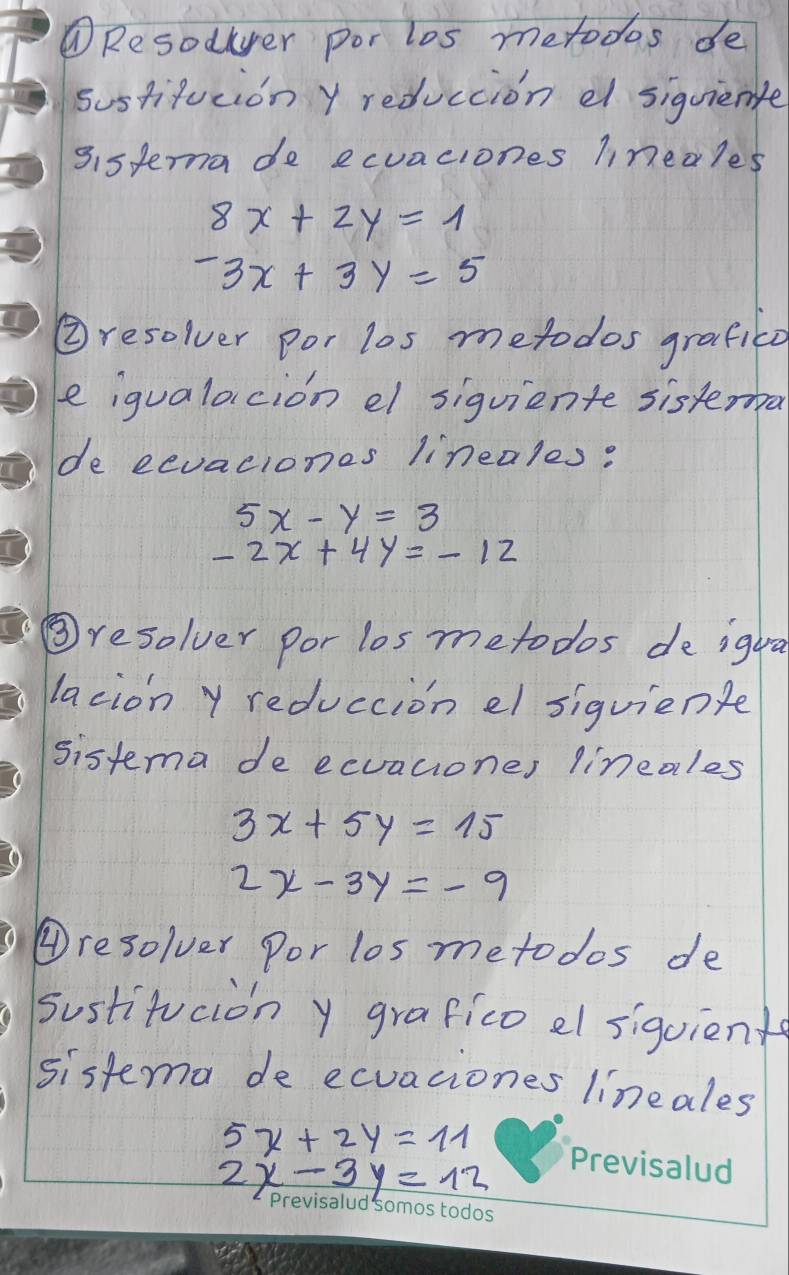 ① Resolver por los metodos de
sustitución y reducción el siguiente
sistema de ecuaciones lineales
8x + 2y = 1
-3x + 3y = 5
② resolver por los metodos grafico
e igualación el siguiente sistema
de ecuaciones lineales:
5x - y = 3
-2x + 4y = -12
③ resolver por los metodos de igua
lación y reducción el siguiente
sistema de ecuaciones lineales
3x + 5y = 15
2x - 3y = -9
④ resolver por los metodos de
sustitución y grafico el siguiente
sistema de ecuaciones lineales
5x + 2y = 11
2x - 3y = 12
Previsalud
Previsalud somos todos